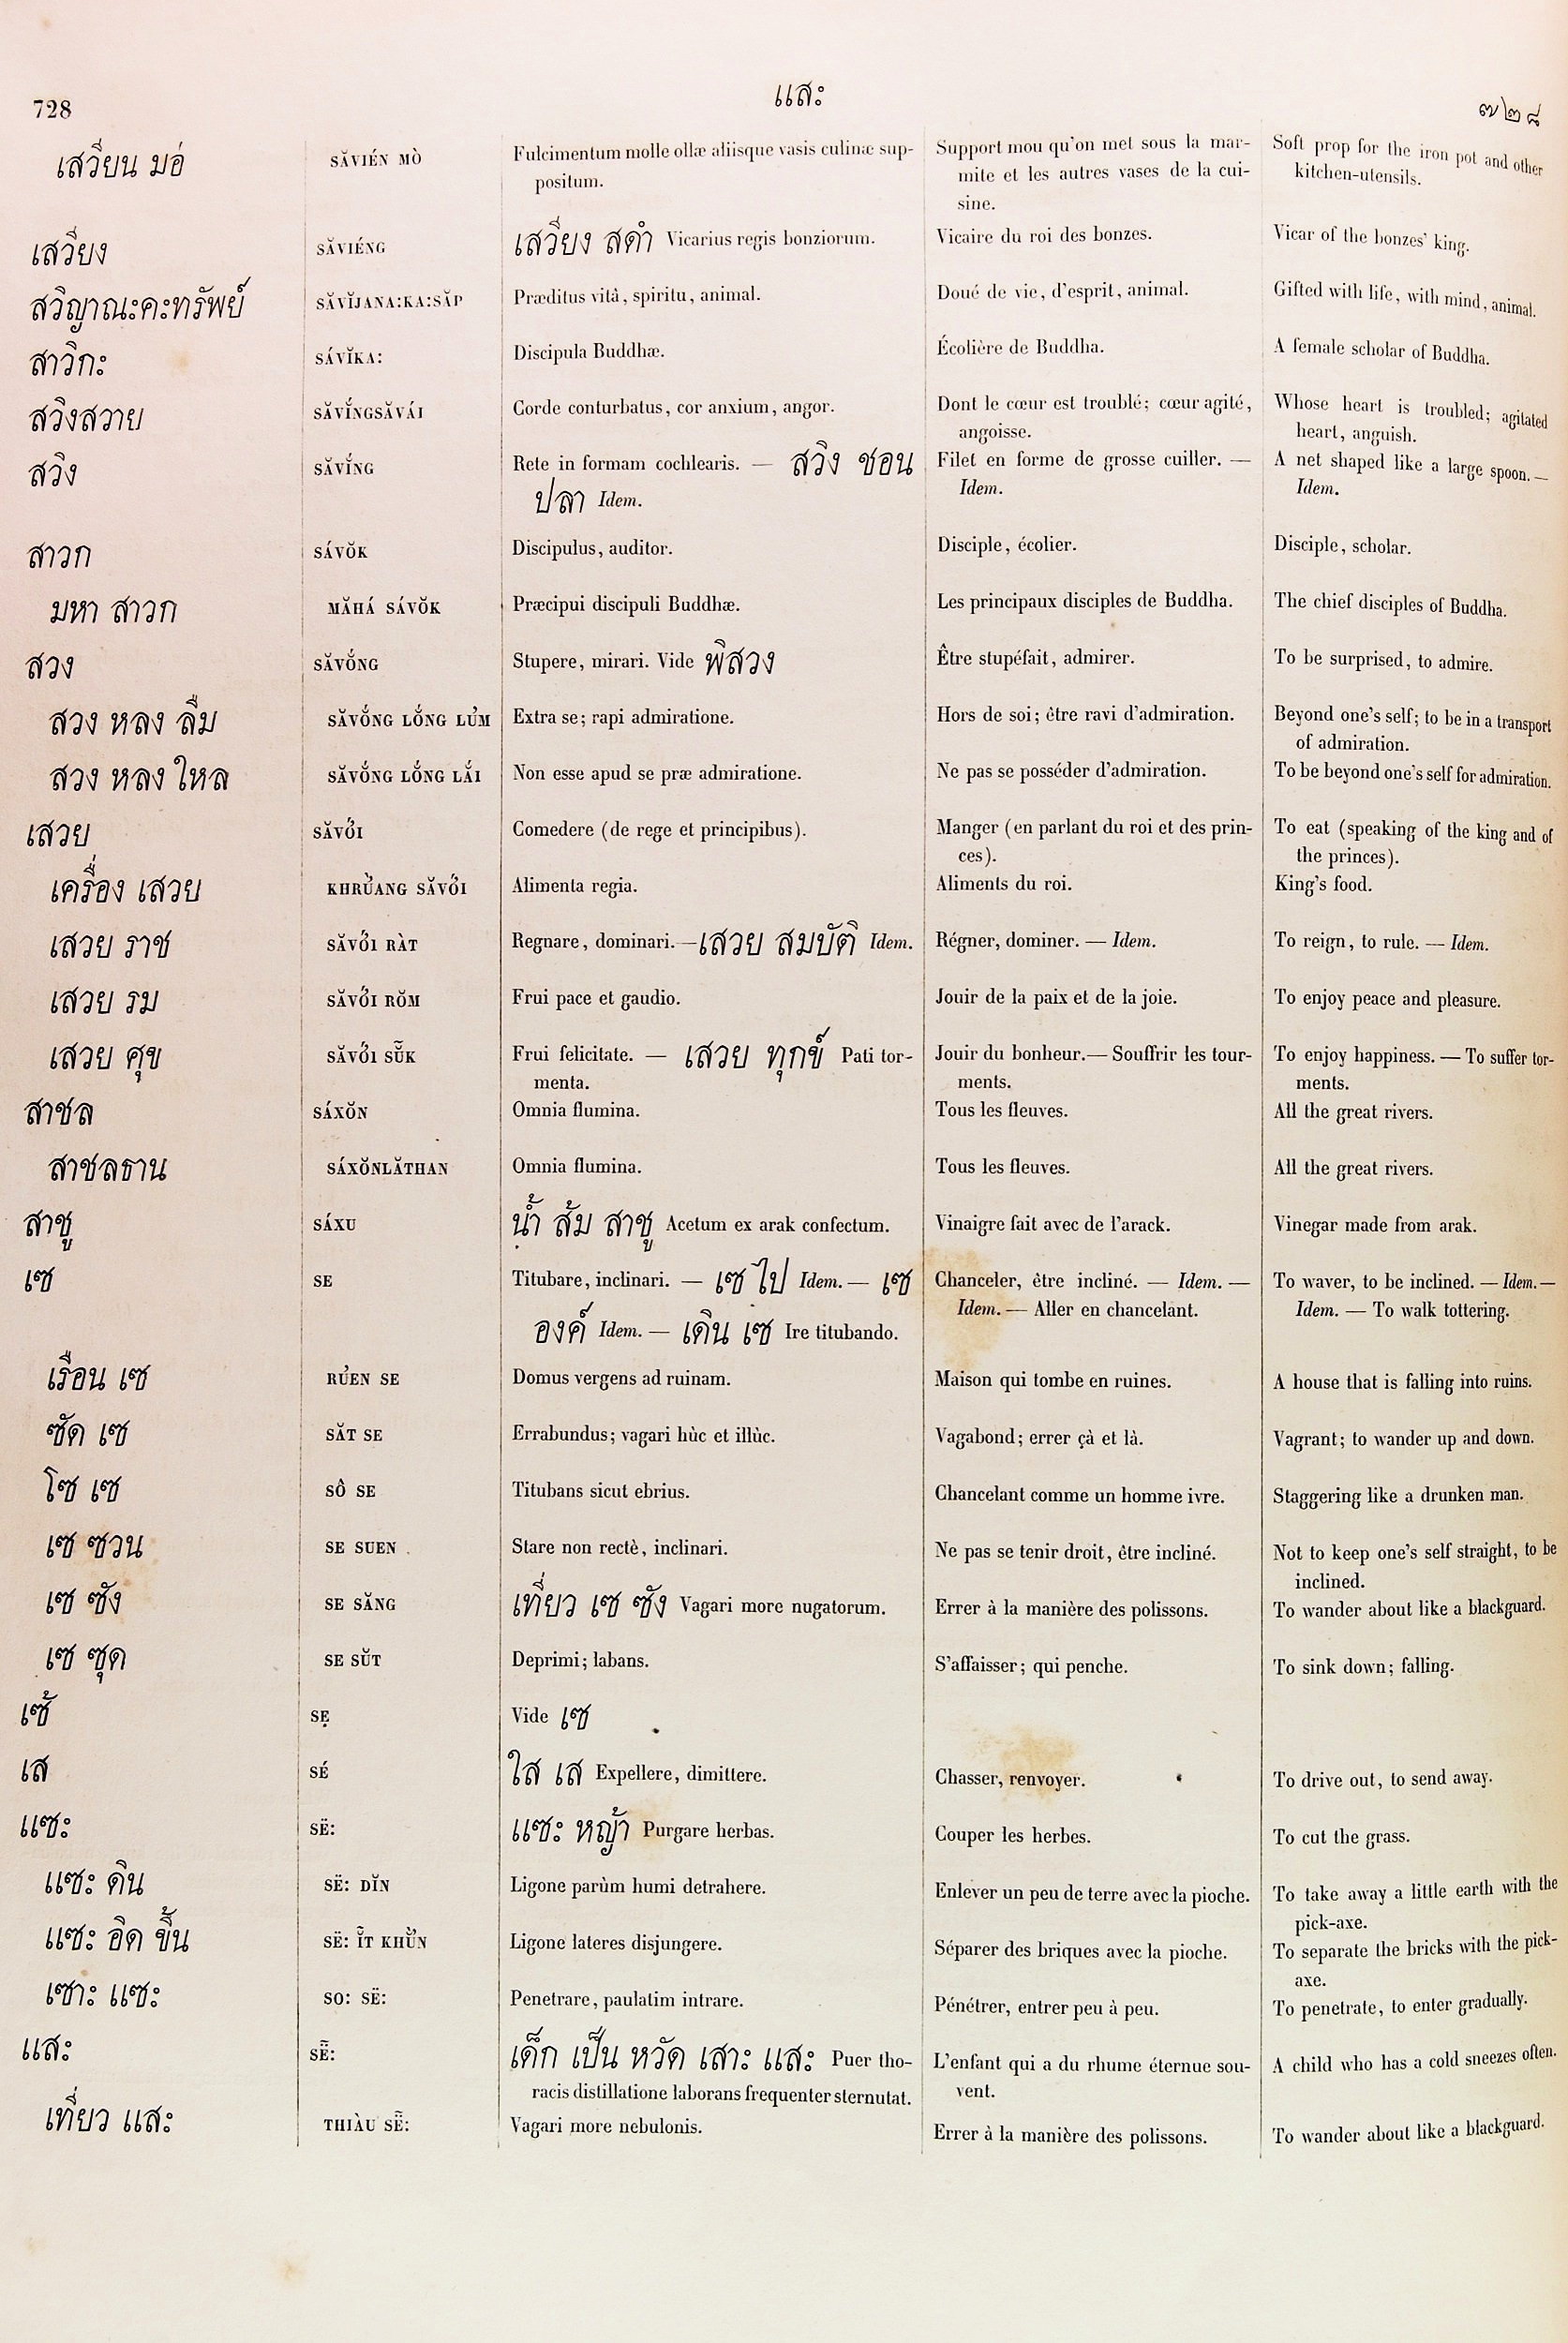 728
แสะ
๗๒๘
เสวียน มอ่ SĂVIÉN MÒ Fulcimentum molle ollæ aliisque vasis culinæ sup- Support mou qu'on met sous la mar- Soft prop for the iron pot and other
positum. mite et les autres vases de la cui- kitchen-utensils.
sine.
เสวียง SĂVIÉNG เสวียง สดำ Vicarius regis bonziorum. Vicaire du roi des bonzes. Vicar of the bonzes' king.
สวิญาณะคะทรัพย์ SĂVĬJANA:KA:SĂP Præditus vitâ, spiritu, animal. Doué de vie, d'esprit, animal. Gifted with life, with mind, animal.
สาวิกะ SÁVĬKA: Discipula Buddhæ. Écolière de Buddha. A female scholar of Buddha.
สวิงสวาย SĂVĬ́NGSĂVÁI Corde conturbatus, cor anxium, angor. Dont le cœur est troublé; cœur agité, Whose heart is troubled; agitated
angoisse. heart, anguish.
สวิง SĂVĬ́NG Rete in formam cochlearis. — สวิง ชอน Filet en forme de grosse cuiller. — A net shaped like a large spoon. —
ปลา Idem. Idem. Idem.
สาวก SÁVŎK Discipulus, auditor. Disciple, écolier. Disciple, scholar.
มหา สาวก MĂHÁ SÁVŎK Præcipui discipuli Buddhæ. Les principaux disciples de Buddha. The chief disciples of Buddha.
สวง SĂVŎ́NG Stupere, mirari. Vide พิสวง Être stupéfait, admirer. To be surprised, to admire.
สวง หลง ลืม SĂVŎ́NG LŎ́NG LU̓M Extra se; rapi admiratione. Hors de soi; être ravi d'admiration. Beyond one's self; to be in a transport
of admiration.
สวง หลง ใหล SĂVŎ́NG LŎ́NG LẮI Non esse apud se præ admiratione. Ne pas se posséder d'admiration. To be beyond one's self for admiration.
เสวย SĂVO̓́I Comedere (de rege et principibus). Manger (en parlant du roi et des prin- To eat (speaking of the king and of
ces). the princes).
เครื่อง เสวย KHRU̓̀ANG SĂVO̓́I Alimenta regia. Aliments du roi. King's food.
เสวย ราช SĂVO̓́I RÀT Regnare, dominari. — เสวย สมบัติ Idem. Régner, dominer. — Idem. To reign, to rule. — Idem.
เสวย รม SĂVO̓́I RŎM Frui pace et gaudio. Jouir de la paix et de la joie. To enjoy peace and pleasure.
เสวย ศุข SĂVO̓́I SŬ̃K Frui felicitate. — เสวย ทุกข์ Pati tor- Jouir du bonheur. — Souffrir les tour- To enjoy happiness. — To suffer tor-
menta. ments. ments.
สาชล SÁXŎN Omnia flumina. Tous les fleuves. All the great rivers.
สาชลธาน SÁXŎNLĂTHAN Omnia flumina. Tous les fleuves. All the great rivers.
สาชู SÁXU น้ำ ส้ม สาชู Acetum ex arak confectum. Vinaigre fait avec de l'arack. Vinegar made from arak.
เซ SE Titubare, inclinari. — เซ ไป Idem. — เซ Chanceler, être incliné. — Idem. — To waver, to be inclined. — Idem. —
องค์ Idem. — เดิน เซ Ire titubando. Idem. — Aller en chancelant. Idem. — To walk tottering.
เรือน เซ RU̓EN SE Domus vergens ad ruinam. Maison qui tombe en ruines. A house that is falling into ruins.
ซัด เซ SĂT SE Errabundus; vagari hùc et illùc. Vagabond; errer çà et là. Vagrant; to wander up and down.
โซ เซ SÔ SE Titubans sicut ebrius. Chancelant comme un homme ivre. Staggering like a drunken man.
เซ ซวน SE SUEN Stare non rectè, inclinari. Ne pas se tenir droit, être incliné. Not to keep one's self straight, to be
inclined.
เซ ซัง SE SĂNG เที่ยว เซ ซัง Vagari more nugatorum. Errer à la manière des polissons. To wander about like a blackguard.
เซ ซุด SE SŬT Deprimi; labans. S'affaisser; qui penche. To sink down; falling.
เซ้ SẸ Vide เซ
เส SÉ ใส เส Expellere, dimittere. Chasser, renvoyer. To drive out, to send away.
แซะ SË: แซะ หญ้า Purgare herbas. Couper les herbes. To cut the grass.
แซะ ดิน SË: DĬN Ligone parùm humi detrahere. Enlever un peu de terre avec la pioche. To take away a little earth with the
pick-axe.
แซะ อิด ขึ้น SË: Ĭ̃T KHU̓̀N Ligone lateres disjungere. Séparer des briques avec la pioche. To separate the bricks with the pick-
axe.
เซาะ แซะ SO: SË: Penetrare, paulatim intrare. Pénétrer, entrer peu à peu. To penetrate, to enter gradually.
แสะ SË̃: เด็ก เป็น หวัด เสาะ แสะ Puer tho- L'enfant qui a du rhume éternue sou- A child who has a cold sneezes often.
racis distillatione laborans frequenter sternutat. vent.
เที่ยว แสะ THIÀU SË̃: Vagari more nebulonis. Errer à la manière des polissons. To wander about like a blackguard.